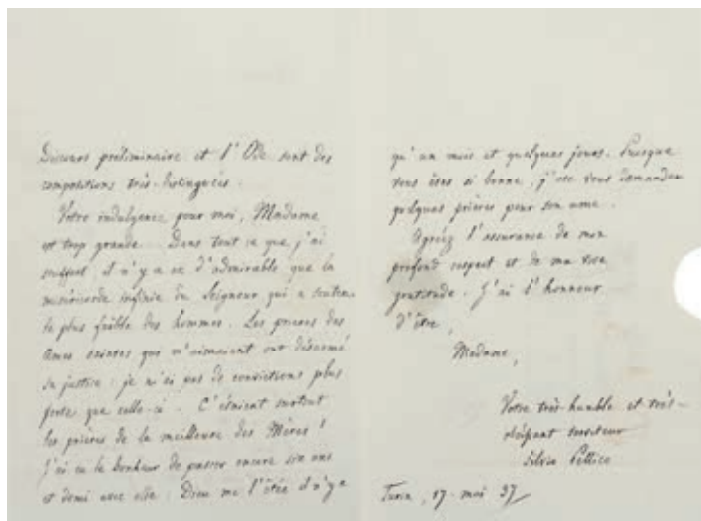 Discours préliminaire et l'Ode sont des
compositions très-distinguées.
Votre indulgence pour moi, Madame
est trop grande. Dans tout ce que j'ai
souffert il n'y a eu d'admirable que la
miséricorde infinie du Seigneur qui a soutenu
le plus faible des hommes. Les prières des
âmes saintes qui m'aimaient ont désarmé
sa justice : je n'ai pas de convictions plus
forte que celle-ci. C'étaient surtout
les prières de la meilleure des Mères !
J'ai eu le bonheur de passer encore six ans
et demi avec elle : Dieu me l'ôtée il n'y a
qu'un mois et quelques jours. Puisque
vous êtes si bonne, j'ose vous demander
quelques prières pour son ame.
Agréez l'assurance de mon
profond respect et de ma vive
gratitude. J'ai l'honneur
d'être,
Madame,
Votre très-humble et très-
obéissant serviteur
Silvio Pellico
Turin, 17 mai 37